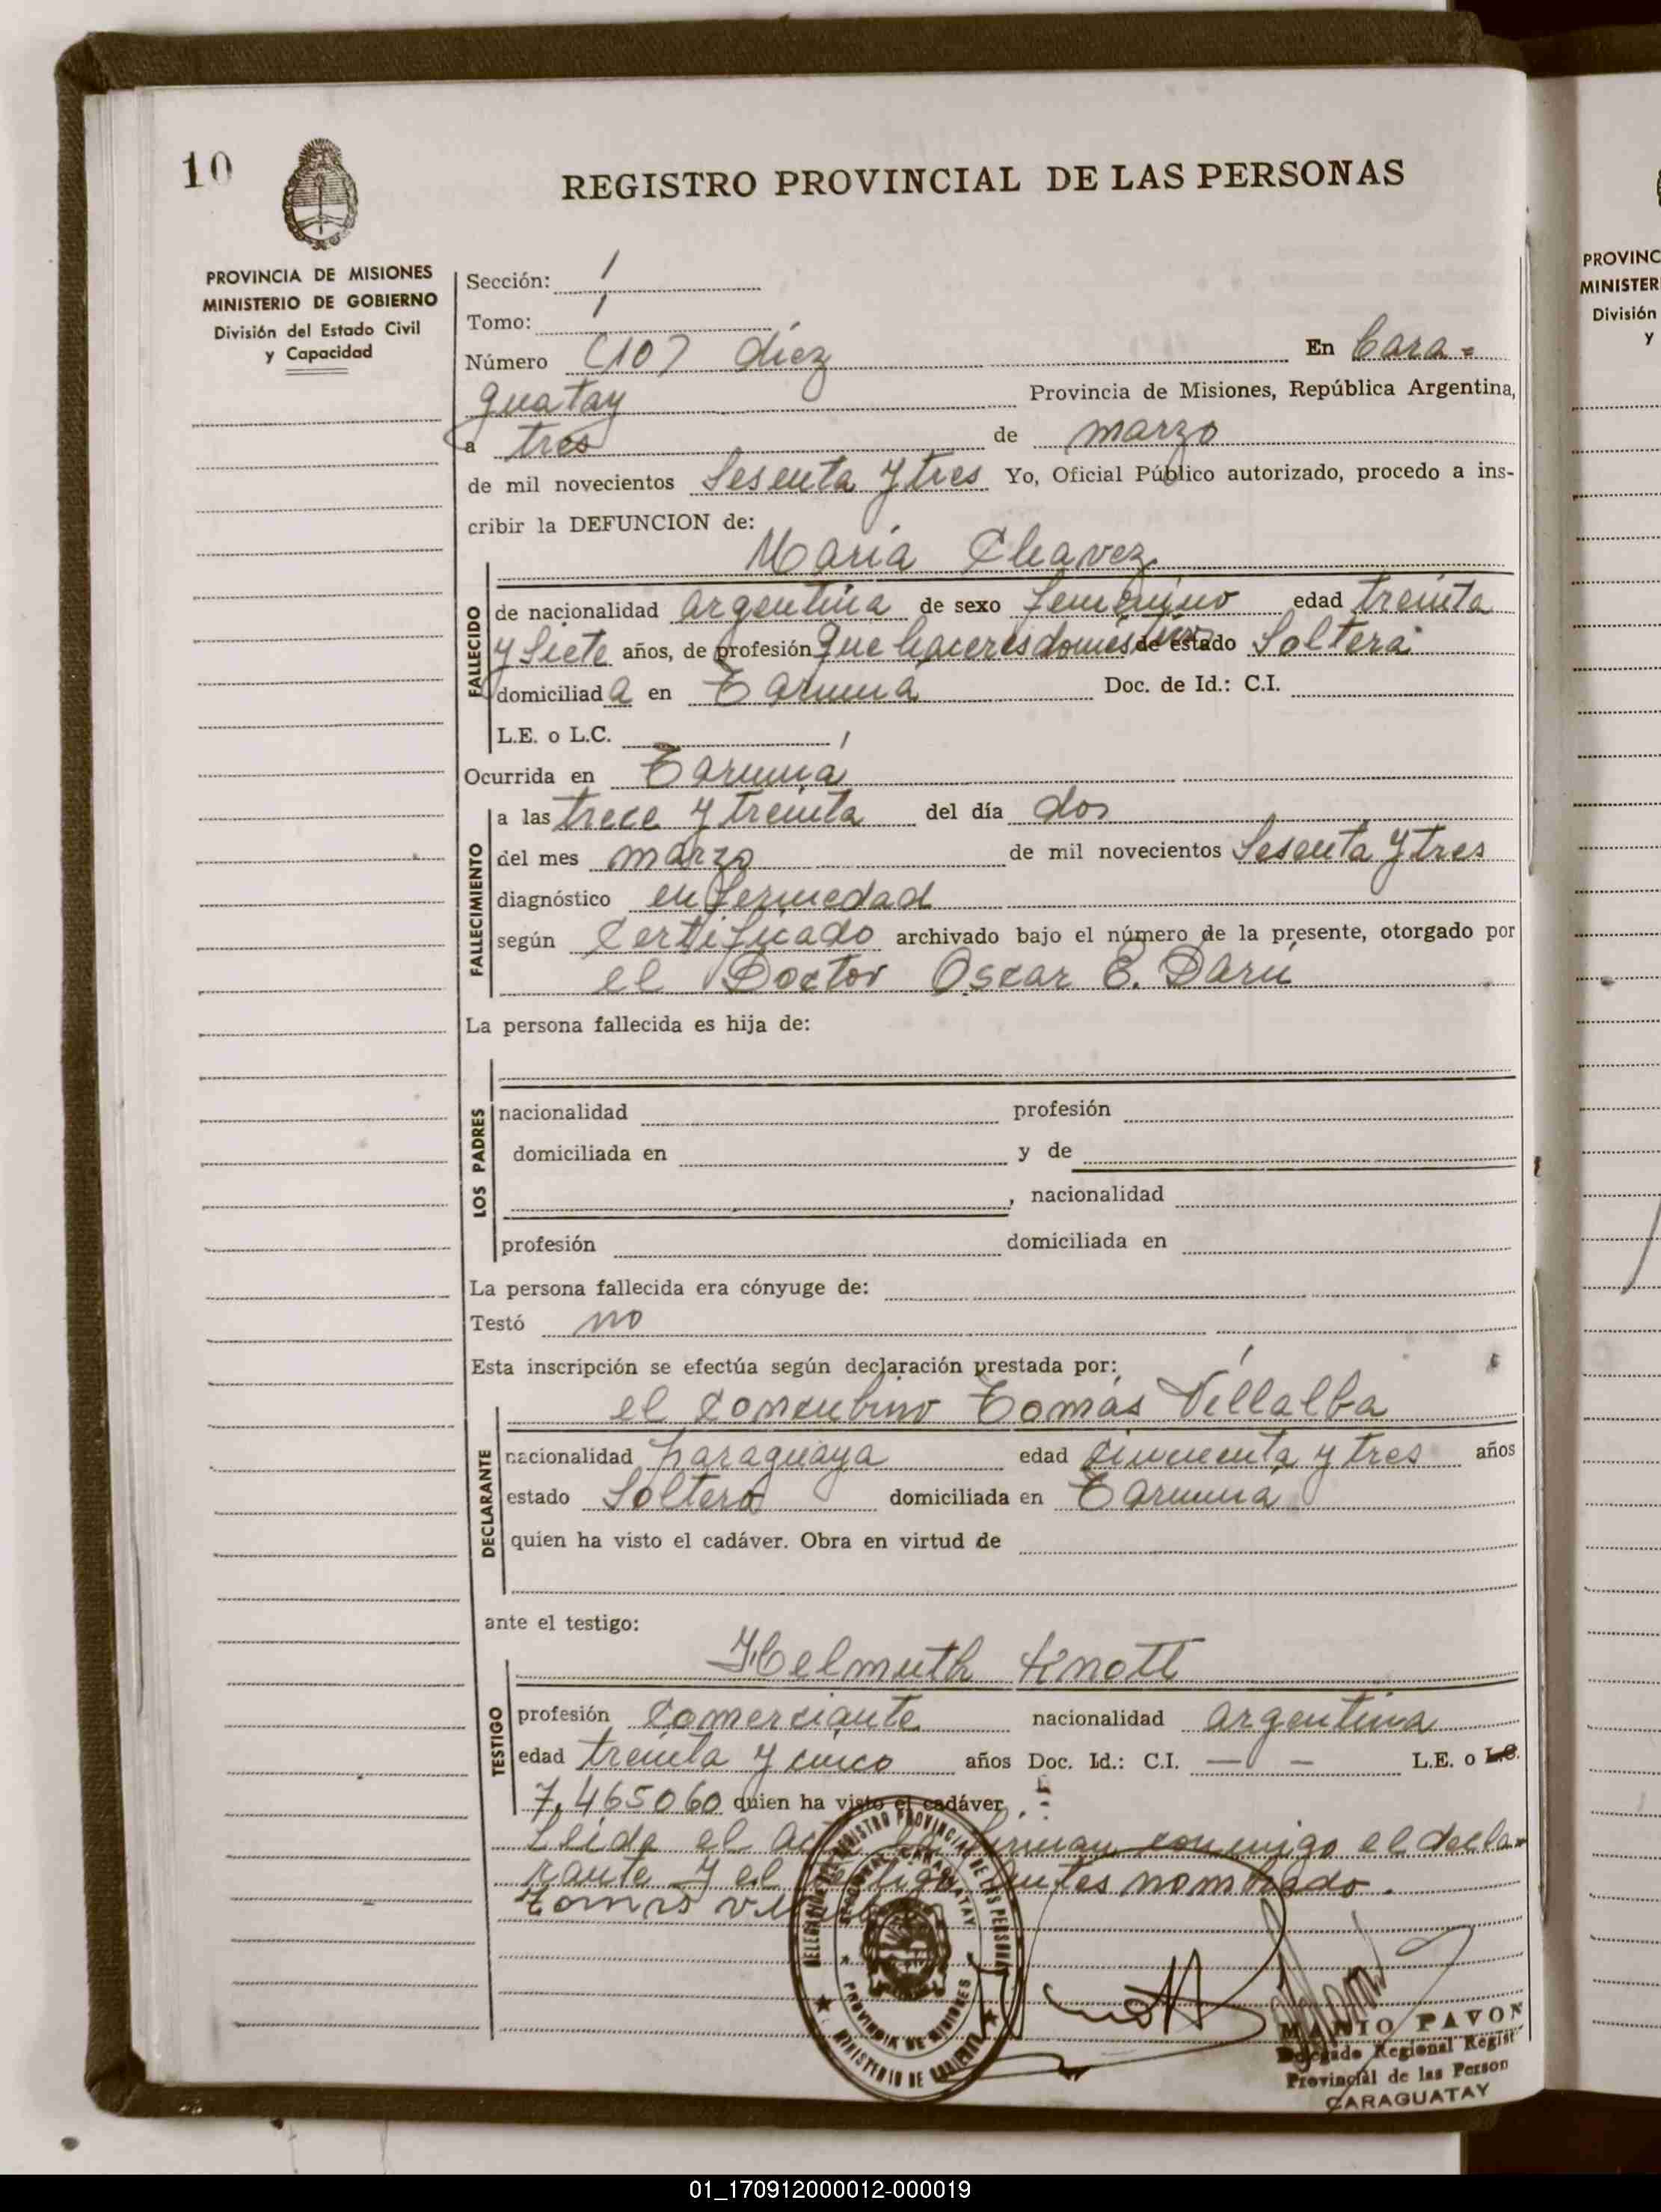 10
REGISTRO PROVINCIAL DE LAS PERSONAS
PROVINCIA DE MISIONES
MINISTERIO DE GOBIERNO
División del Estado Civil
y Capacidad
Sección: 1
Tomo: 1
Número (10) diez En Cara=
guatay Provincia de Misiones, República Argentina,
a tres de marzo
de mil novecientos Sesenta y tres Yo, Oficial Público autorizado, procedo a ins-
cribir la DEFUNCION de:
María Chavez
FALLECIDO
de nacionalidad argentina de sexo femenino edad treinta
y Siete años, de profesión que haceres domésticos de estado Soltera
domiciliada en Tarumá Doc. de Id.: C.I.
L.E. o L.C.
Ocurrida en Tarumá
FALLECIMIENTO
a las trece y treinta del día dos
del mes marzo de mil novecientos Sesenta y tres
diagnóstico enfermedad
según Certificado archivado bajo el número de la presente, otorgado por
el Doctor Oscar E. Darú
La persona fallecida es hija de:
LOS PADRES
nacionalidad profesión
domiciliada en y de
, nacionalidad
profesión domiciliada en
La persona fallecida era cónyuge de:
Testó no
Esta inscripción se efectúa según declaración prestada por:
el Concubino Tomás Villalba
DECLARANTE
nacionalidad paraguaya edad cincuenta y tres años
estado Soltero domiciliada en Tarumá
quien ha visto el cadáver. Obra en virtud de
ante el testigo:
Helmuth Knott
TESTIGO
profesión Comerciante nacionalidad argentina
edad treinta y cinco años Doc. Id.: C.I. — – L.E. o L.C.
7.465060 quien ha visto el cadáver.
Leida el acta la firman conmigo el decla=
rante y el testigo antes nombrado.
Tomas
DELEGACION DEL REGISTRO PROVINCIAL DE LAS PERSONAS
REGIONAL CARAGUATAY
PROVINCIA DE MISIONES
MINISTERIO DE GOBIERNO
MARIO PAVON
Delegado Regional Regist
Provincial de las Person
CARAGUATAY
PROVINC
MINISTER
División
y
01_170912000012-000019